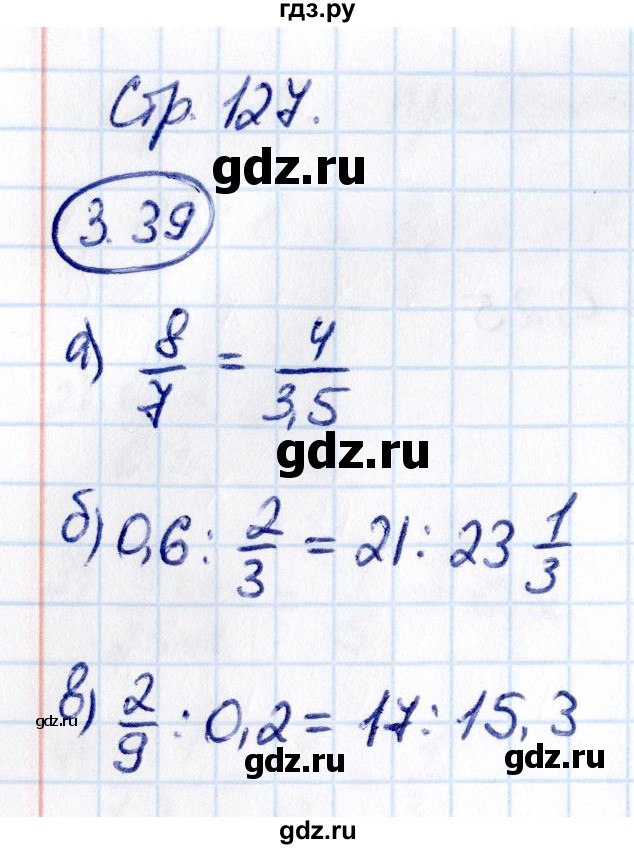 гдз.ру
Стр. 127.
gdz.ru
3.39
а) 8/7 = 4/3,5
gdz.ru
б) 0,6 : 2/3 = 21 : 23 1/3
gdz.ru
в) 2/9 : 0,2 = 17 : 15,3
gdz.ru
gdz.ru
gdz.ru